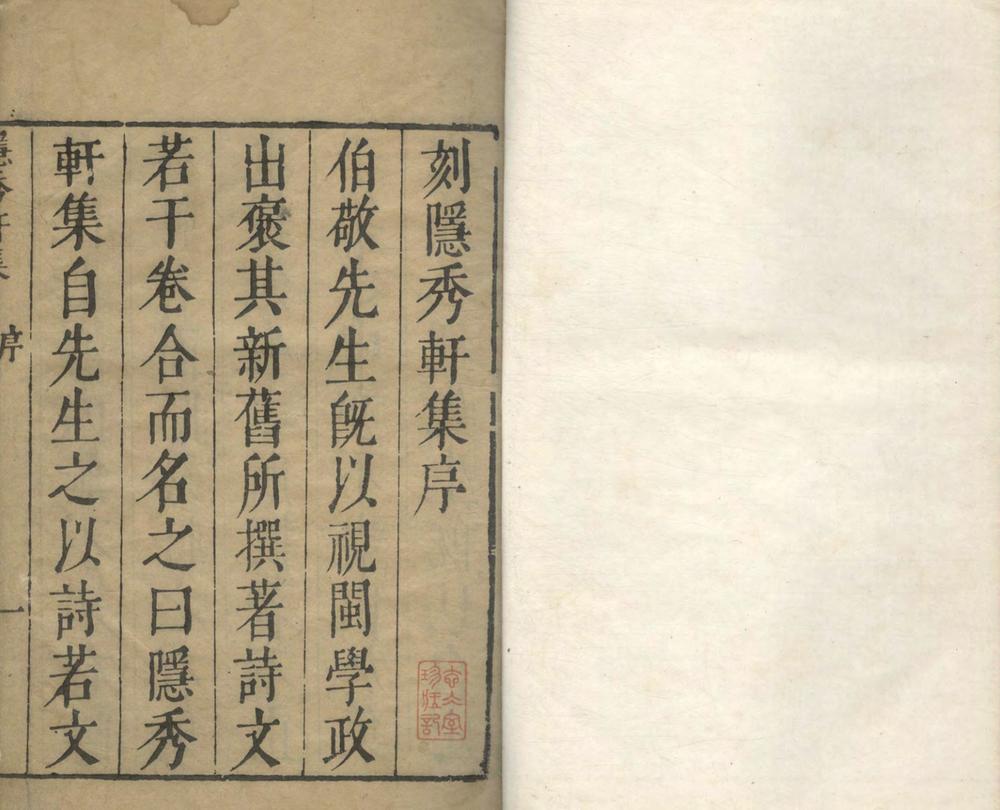 刻隱秀軒集序
伯敬先生旣以視閩學政
出裒其新舊所撰著詩文
若干卷合而名之曰隱秀
軒集自先生之以詩若文
隱秀軒集
序
一